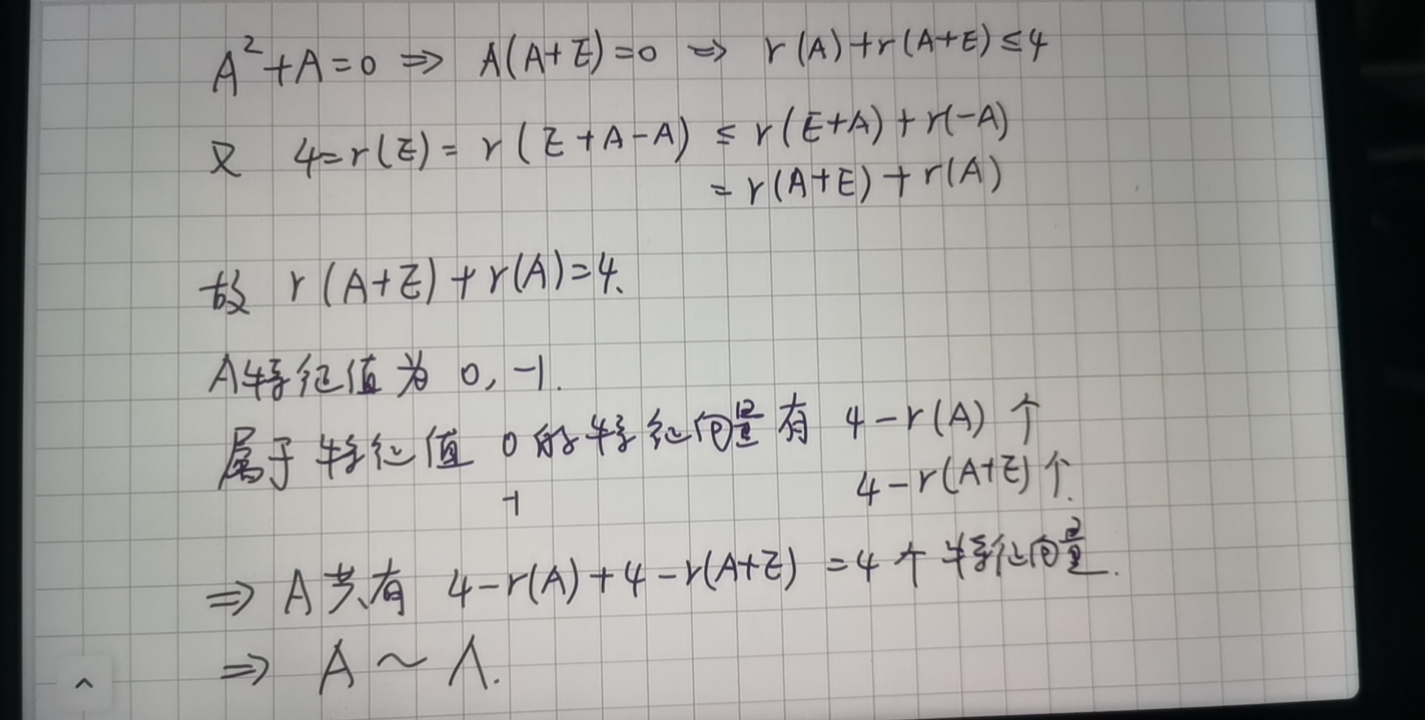 A²+A=0 ⇒ A(A+E)=0 ⇒ r(A)+r(A+E)≤4
又 4=r(E)=r(E+A-A)≤r(E+A)+r(-A)
=r(A+E)+r(A)
故 r(A+E)+r(A)=4.
A特征值为 0, -1.
属于特征值 0 的特征向量有 4-r(A) 个
-1 4-r(A+E) 个.
⇒ A共有 4-r(A)+4-r(A+E) =4个特征向量.
⇒ A~Λ.